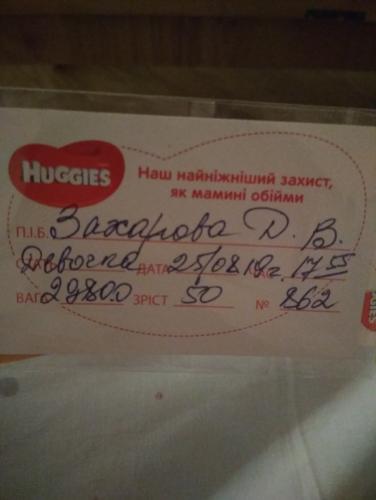 HUGGIES
Наш найніжніший захист,
як мамині обійми
П.І.Б. Захарова Д. В.
Девочка ДАТА 25/08 18г. 17 55
ВАГ 2980.0 ЗРІСТ 50 № 862